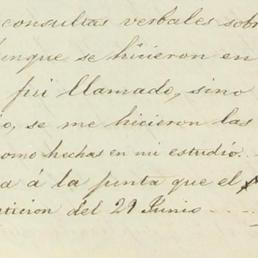 consultas verbales sobr
unque se hicieron en
fui llamado, sino
o, se me hicieron las
omo hechas en mi estudio.
a á la junta que el
ticion del 29 Junio